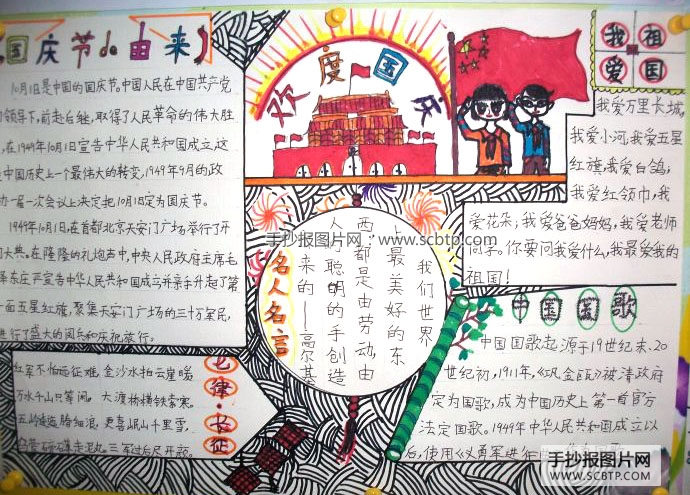 国庆节的由来
10月1日是中国的国庆节。中国人民在中国共产党
的领导下,前赴后继,取得了人民革命的伟大胜
,在1949年10月1日宣告中华人民共和国成立,这
是中国历史上一个最伟大的转变,1949年9月的政
协一届一次会议上决定把10月1日定为国庆节。
1949年10月1日,在首都北京天安门广场举行了开
国大典。在隆隆的礼炮声中,中央人民政府主席毛
泽东庄严宣告中华人民共和国成立并亲手升起了第
一面五星红旗,聚集天安门广场的三十万军民,
进行了盛大的阅兵和庆祝旅行。
欢度国庆
我爱祖国
我爱万里长城,
我爱小河,我爱五星
红旗,我爱白鸽;
我爱红领巾,我
爱花朵;我爱爸爸妈妈,我爱老师
同学。你要问我爱什么,我最爱我的
祖国!
手抄报图片网:www.scbtp.com
名人名言
我们世界
上最美好的东
西都是由劳动,由
人聪明的手创造
来的——高尔基
七律·长征
红军不怕远征难,金沙水拍云崖暖
万水千山只等闲。大渡桥横铁索寒。
五岭逶迤腾细浪,更喜岷山千里雪,
乌蒙磅礴走泥丸。三军过后尽开颜。
中国国歌
中国国歌起源于19世纪末、20
世纪初,1911年,《巩金瓯》被清政府
定为国歌,成为中国历史上第一首官方
法定国歌。1949年中华人民共和国成立以
后,使用《义勇军进行曲
手抄报图片网
SCBTP.COM